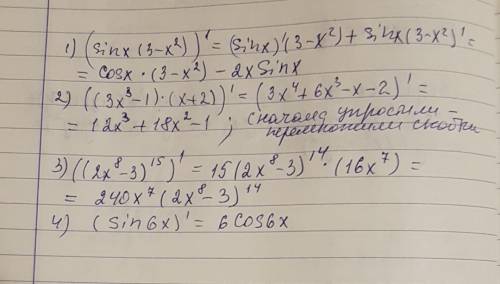 1) (sinx (3-x²))' = (sinx)'(3-x²) + sinx(3-x²)' =
= cosx · (3-x²) - 2x sinx
2) ((3x³-1)·(x+2))' = (3x⁴+6x³-x-2)' =
= 12x³+18x²-1 ; сначала упростили -
перемножили скобки
3) ((2x⁸-3)¹⁵)' = 15(2x⁸-3)¹⁴ · (16x⁷) =
= 240x⁷(2x⁸-3)¹⁴
4) (sin6x)' = 6cos6x